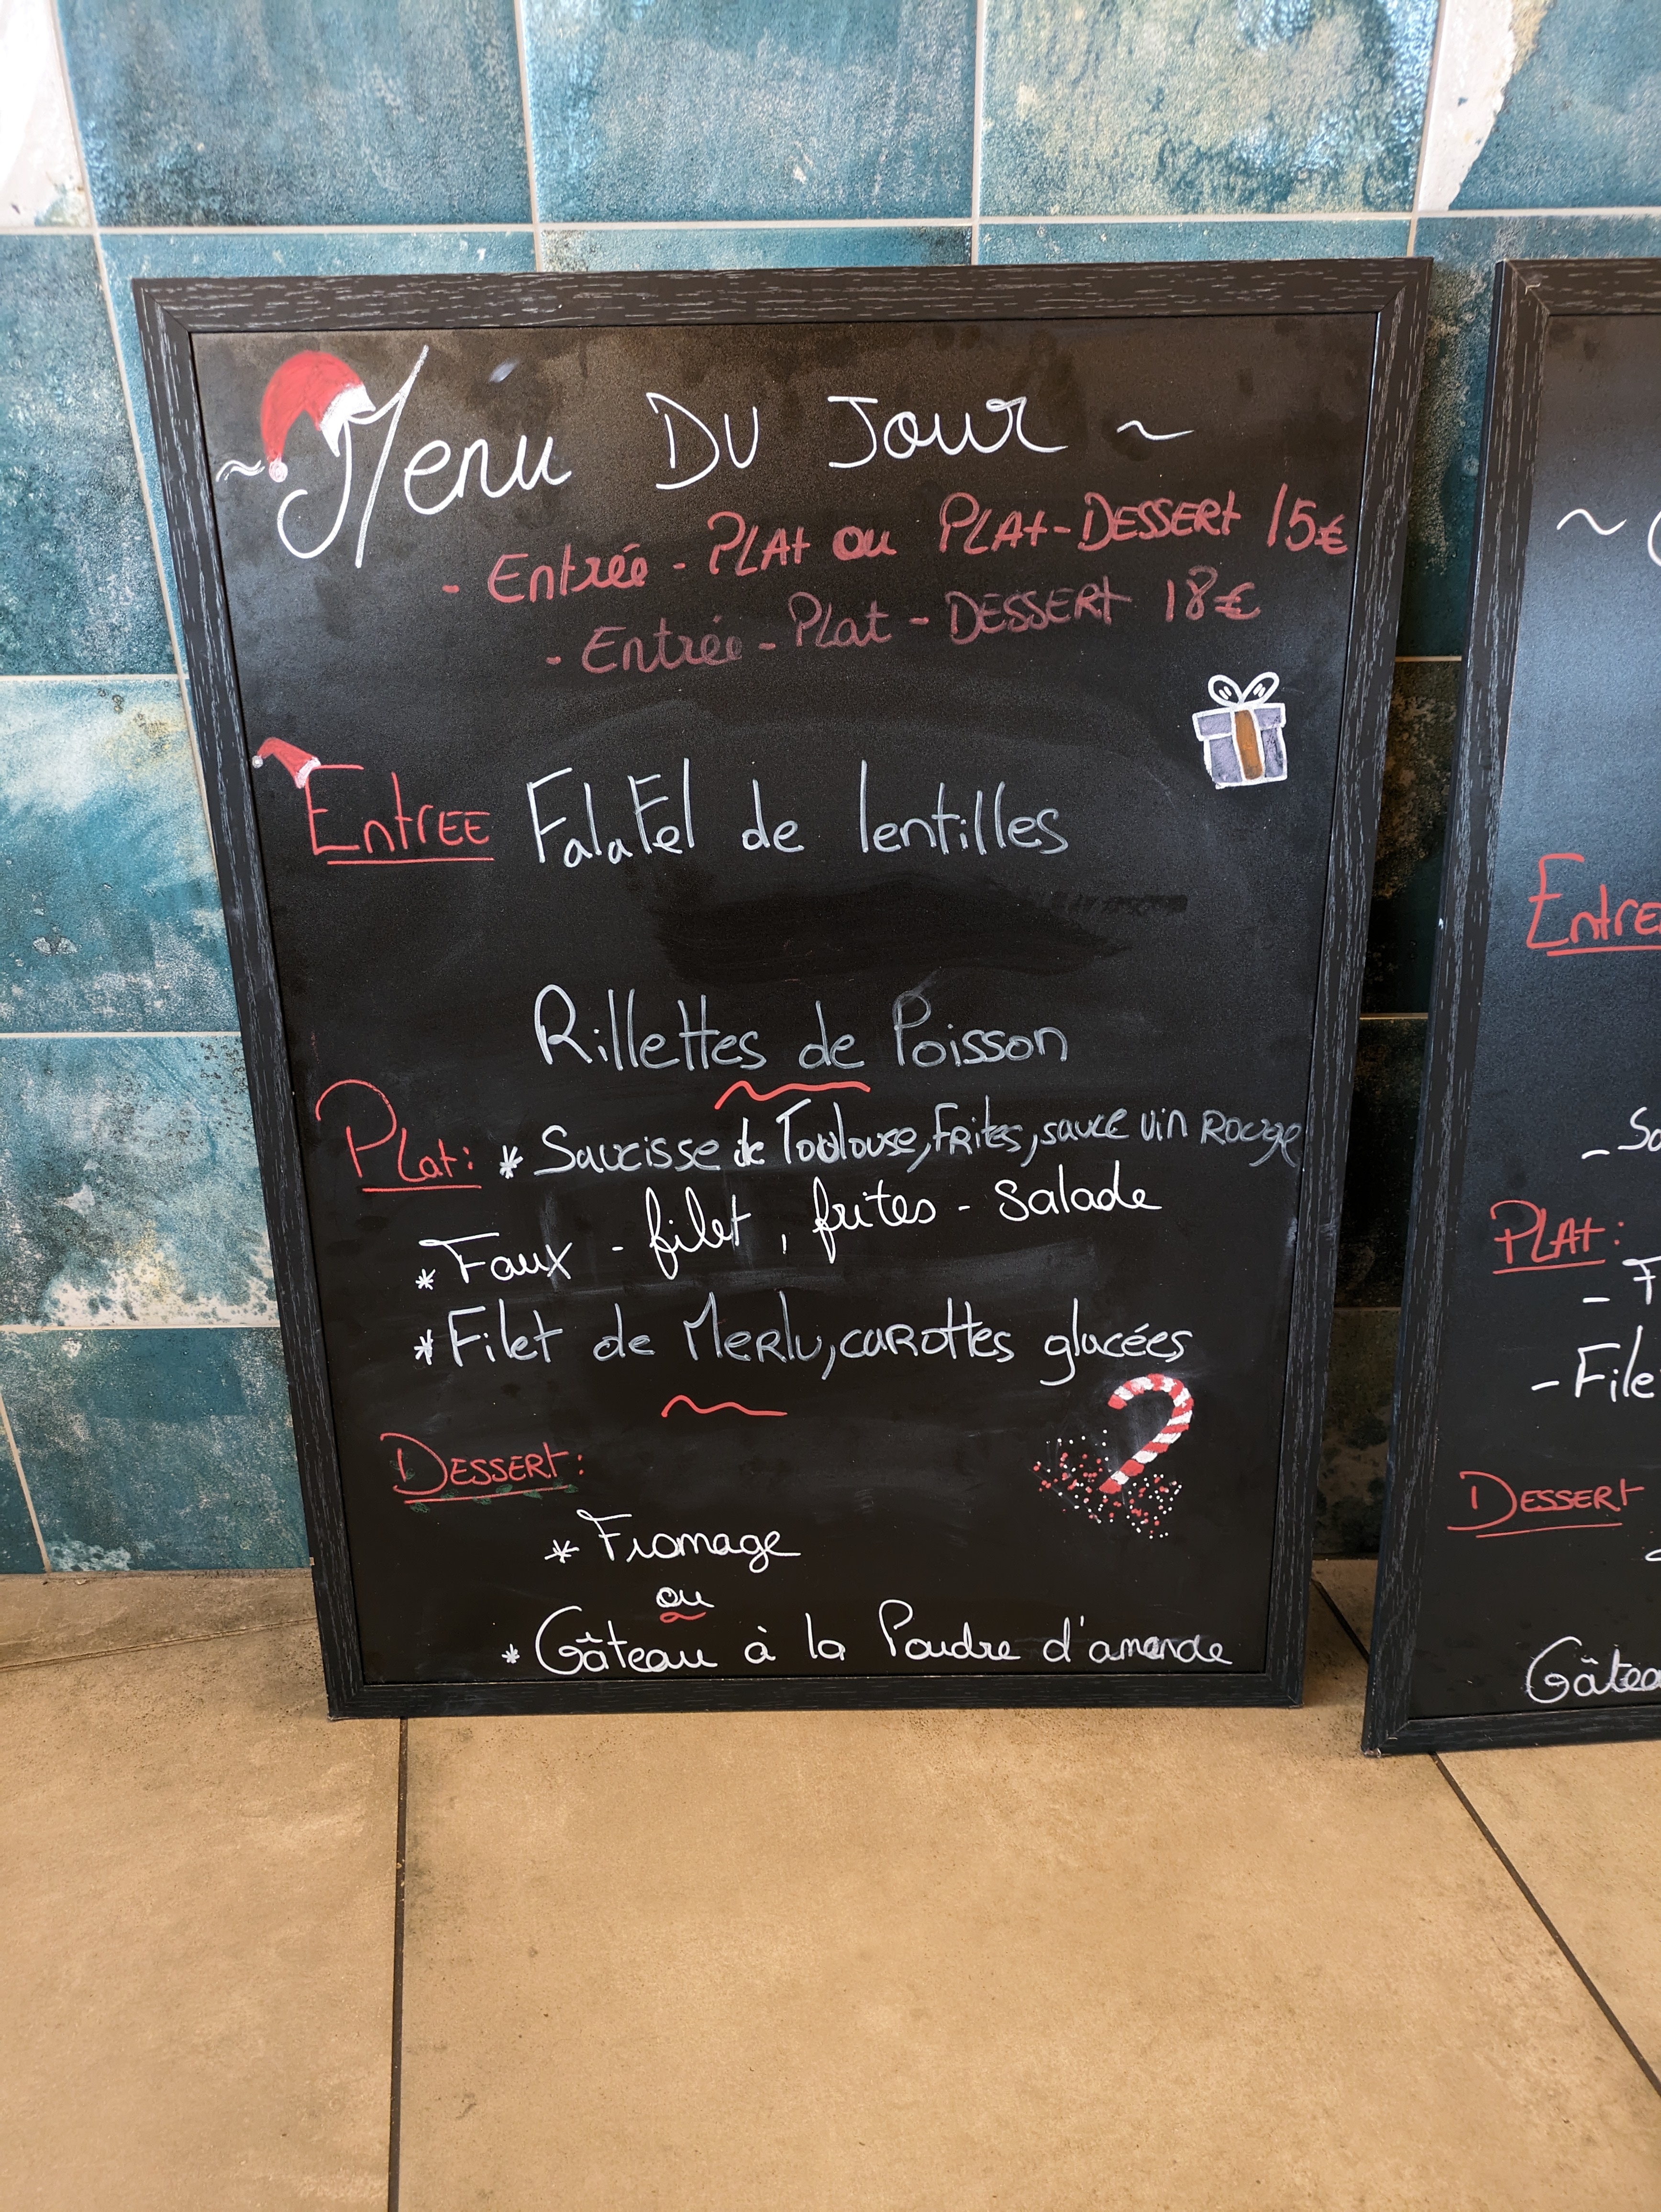 ~ Menu DU Jour ~
- Entrée - PLAt ou PLAt-DESSERt 15€
- Entrée - Plat - DESSERt 18€
EntrEE FalaFel de lentilles
Rillettes de Poisson
PLat: * Saucisse de Toulouse, FRites, sauce vin ROUge
* Faux - filet, frites - Salade
* Filet de MeRlu, caROttes glacées
DESSERt:
* Fromage
ou
* Gâteau à la Poudre d'amande
~
Entre
- Sa
PLAt:
- F
- File
DESSERt
Gâtea